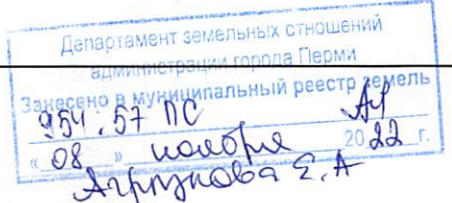 Департамент земельных отношений
администрации города Перми
Занесено в муниципальный реестр земель
954.57 ПС
« 08 » ноября 20 22 г.
Е.А